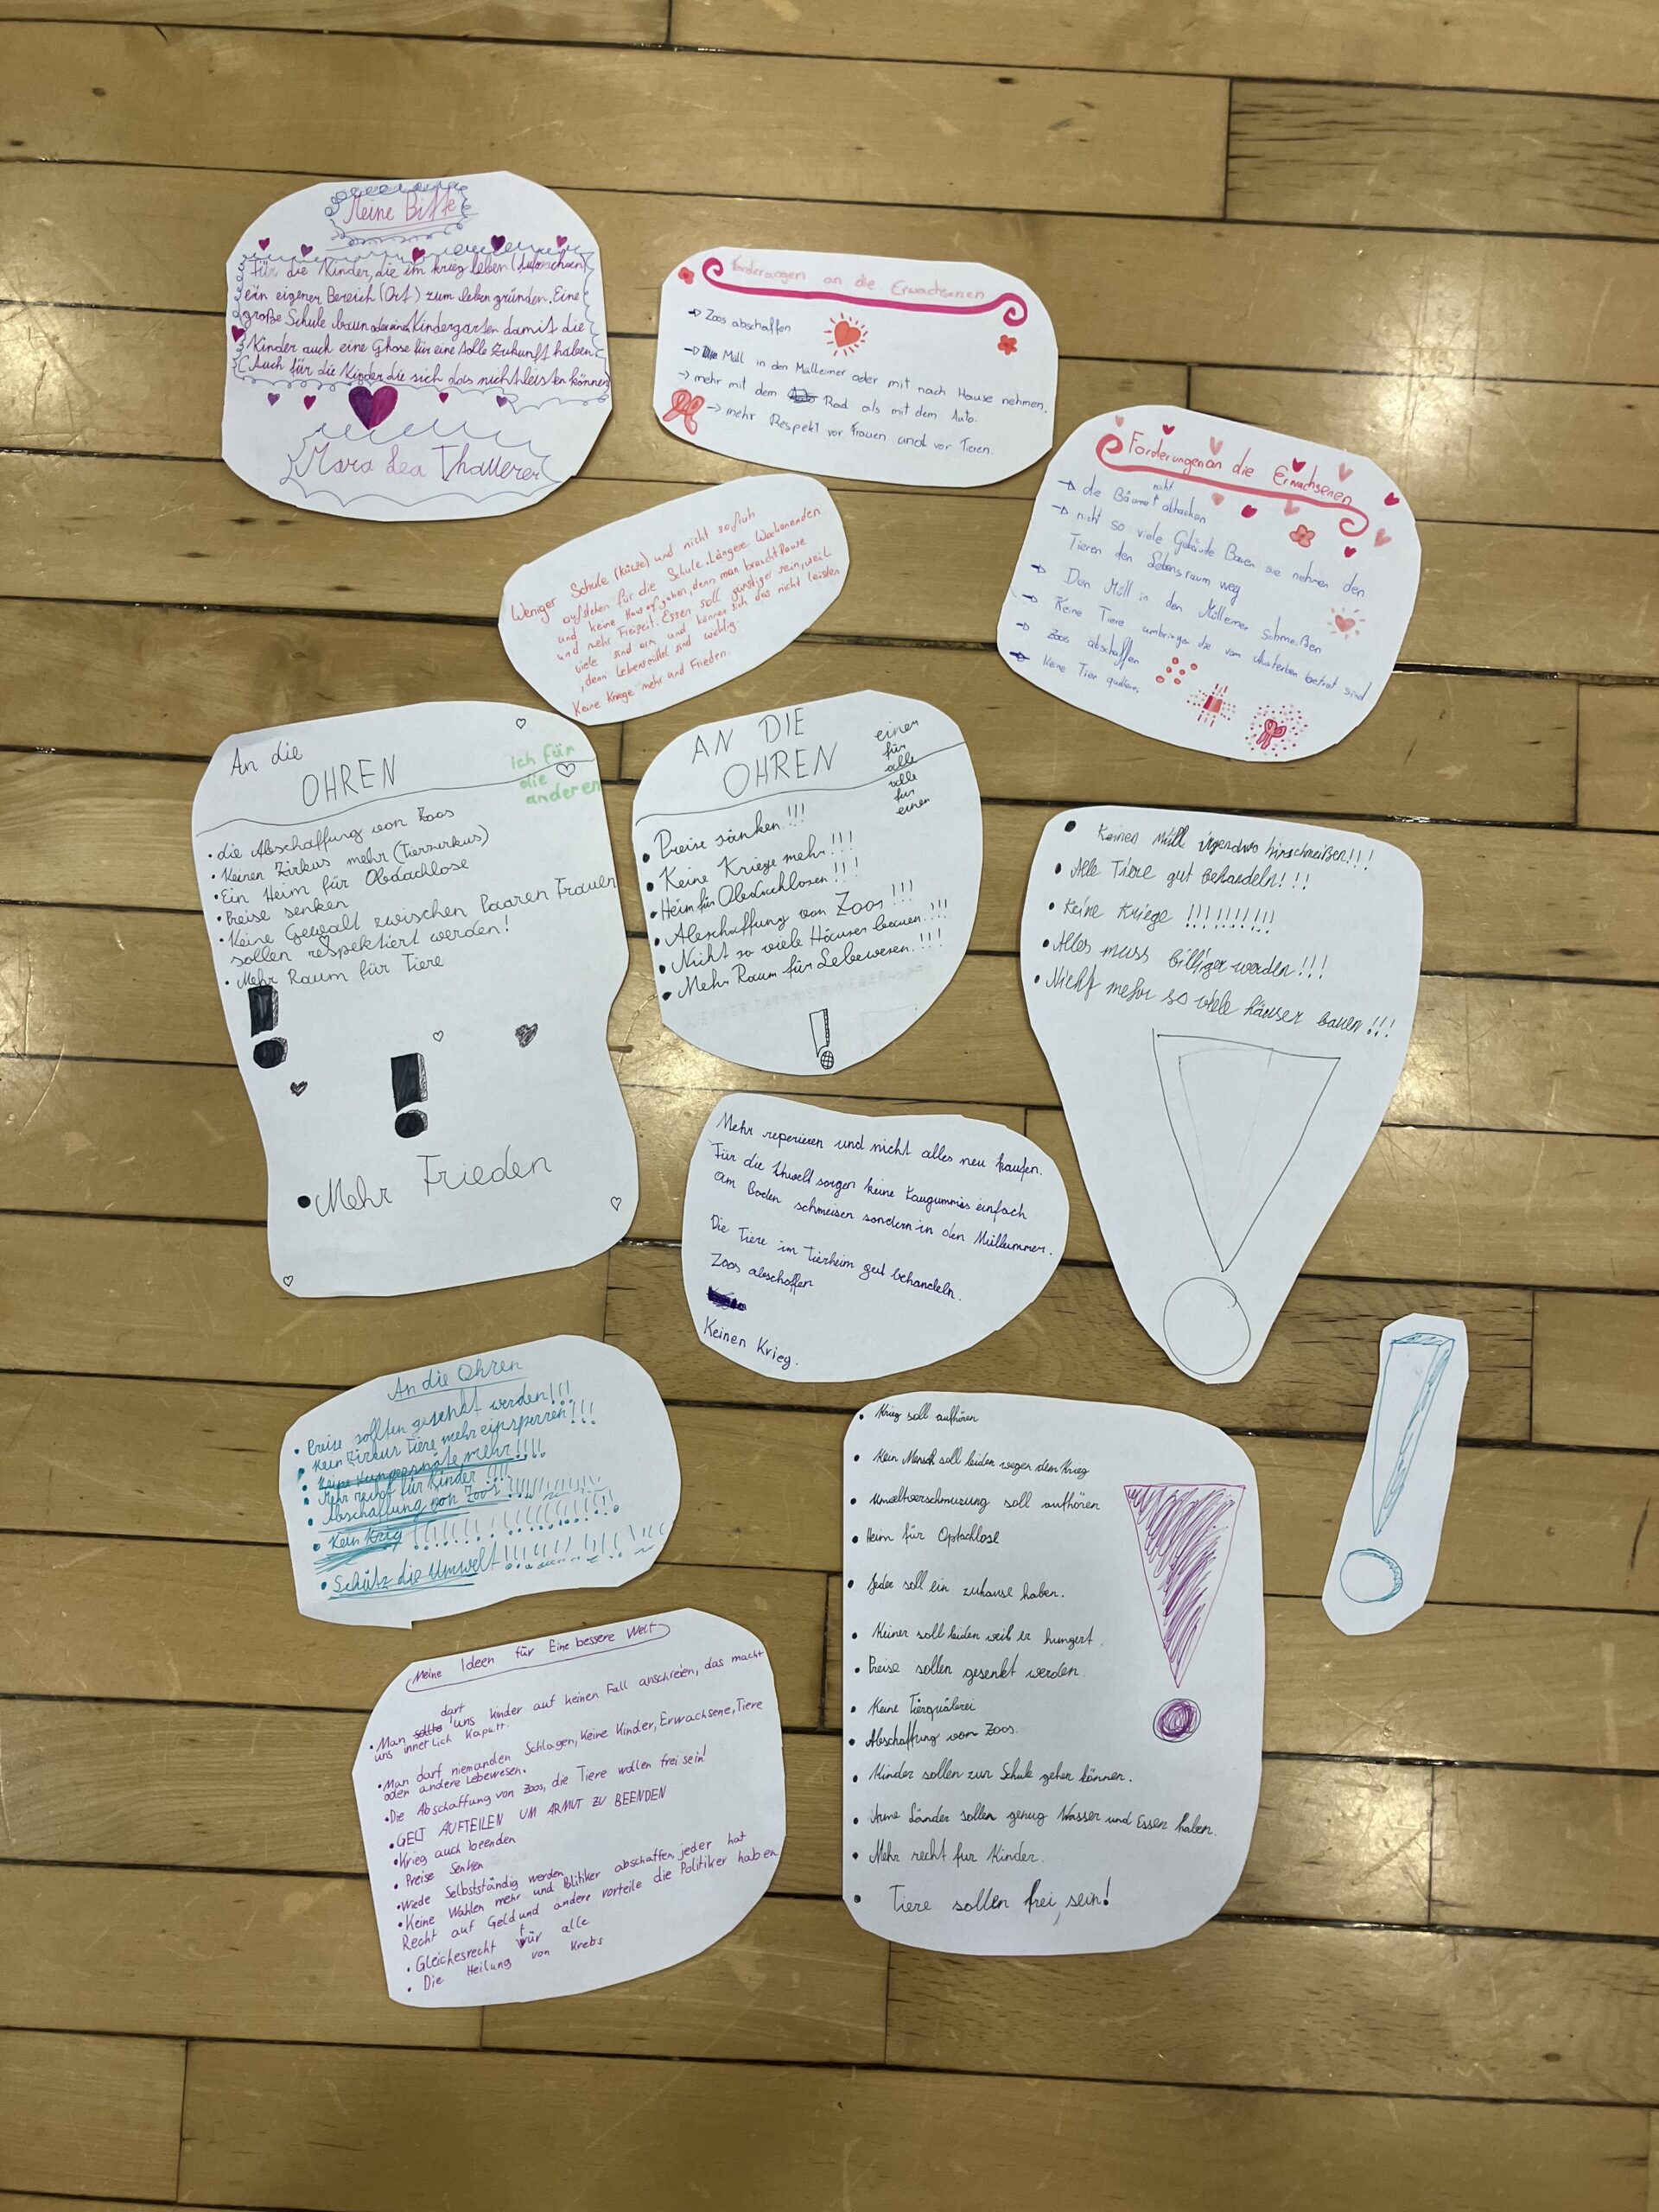 Meine Bitte
Für die Kinder, die im krieg leben
ein eigener Bereich (Ort) zum leben gründen. Eine
große Schule baun oder einen Kindergarten damit die
Kinder auch eine für eine tolle Zukunft haben.
(Auch für die Kinder die sich das nicht leisten können
Mara Lea Thallerer
Forderungen an die Erwachsenen
→ Zoos abschaffen
→ Müll in den Mülleimer oder mit nach Hause nehmen.
→ mehr mit dem Rad als mit dem Auto.
→ mehr Respekt vor Frauen und vor Tieren.
Forderungen an die Erwachsenen
→ die Bäume nicht abhacken
→ nicht so viele Gebäude Bauen sie nehmen den
Tieren den Lebensraum weg
→ Den Müll in den Mülleimer schmeißen
→ Keine Tiere umbringen die vom Austerben betrot sind
→ Zoos abschaffen
→ Keine Tier quälerei
Weniger Schule (Kürze) und nicht so früh
aufstehen für die Schule. Längere Wochenenden
und keine Hausaufgaben, denn man braucht Pause
und mehr Freizeit. Essen soll günstiger sein, weil
viele sind arm und können sich das nicht leisten
, denn Lebensmittel sind wichtig.
Keine Kriege mehr und Frieden.
An die
OHREN
ich für
die
anderen
• die Abschaffung von Zoos
• Keinen Zirkus mehr (Tierzirkus)
• Ein Heim für Obdachlose
• Preise senken
• Keine Gewalt zwischen Paaren Frauen
sollen respektiert werden!
• Mehr Raum für Tiere
!
!
• Mehr Frieden
AN DIE
OHREN
einer
für
alle
alle
für
einen
• Preise sänken !!!
• Keine Kriege mehr !!!
• Heim für Obdachlosen !!!
• Abschaffung von Zoos !!!
• Nicht so viele Häuser bauen !!!
• Mehr Raum für Lebewesen. !!!
!
• Keinen müll irgendwo hinschmeißen!!!
• Alle Tiere gut behandeln!!!
• Keine Kriege !!!!!!!!!!
• Alles muss billiger werden!!!
• Nicht mehr so viele häuser bauen!!!
!
Mehr reperieren und nicht alles neu kaufen.
Für die Umwelt sorgen keine Kaugummis einfach
am Boden schmeisen sondern in den Mülleimmer.
Die Tiere im Tierheim gut behandeln.
Zoos abschaffen
Keinen Krieg.
An die Ohren
• Preise sollten gesenkt werden!!!
• Kein Zirkus Tiere mehr einsperren!!!
• Keine Hungersnöte mehr!!!!
• Mehr recht für Kinder !!!!
• Abschaffung von Zoos
• Kein Krig
• Schütz die Umwelt
!
• Krieg soll aufhören
• Kein Mensch soll leiden wegen dem Krieg
• Umweltverschmuzung soll aufhören
• Heim für Optachlose
• Jeder soll ein zuhause haben.
• Keiner soll leiden weil er hungert.
• Preise sollen gesenkt werden.
• Keine Tierquälerei
• Abschaffung vom Zoos.
• Kinder sollen zur Schule gehen können.
• Arme Länder sollen genug Wasser und Essen haben.
• Mehr recht fur Kinder.
• Tiere sollen frei sein!
!
Meine Ideen für Eine bessere Welt
• Man darf uns kinder auf keinen Fall anschreien, das macht
uns innerlich Kaputt.
• Man darf niemanden Schlagen, Keine Kinder, Erwachsene, Tiere
oder andere Lebewesen.
• Die Abschaffung von Zoos, die Tiere wollen frei sein!
• GELT AUFTEILEN UM ARMUT ZU BEENDEN
• Krieg auch beenden
• Preise Senken
• Wede Selbstständig werden
• Keine Wahlen mehr und Politiker abschaffen, jeder hat
Recht auf Geld und andere vorteile die Politiker haben
• Gleichesrecht für alle
• Die Heilung von Krebs